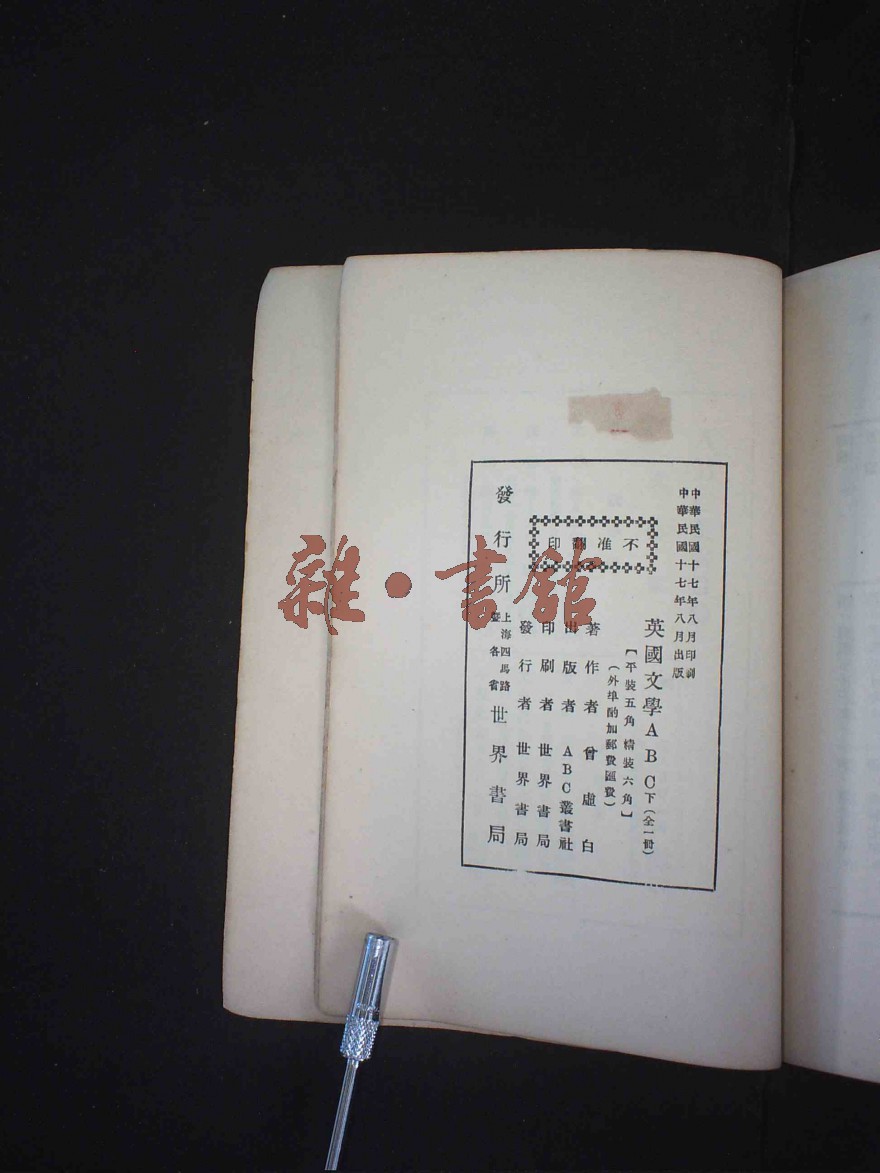 中華民國十七年八月印刷
中華民國十七年八月出版
英國文學ABC下（全一冊）
【平裝五角 精裝六角】
（外埠酌加郵費匯費）
不准翻印
著作者 曾虛白
出版者 ABC叢書社
印刷者 世界書局
發行者 世界書局
發行所 上海四馬路暨各省 世界書局
雜·書館